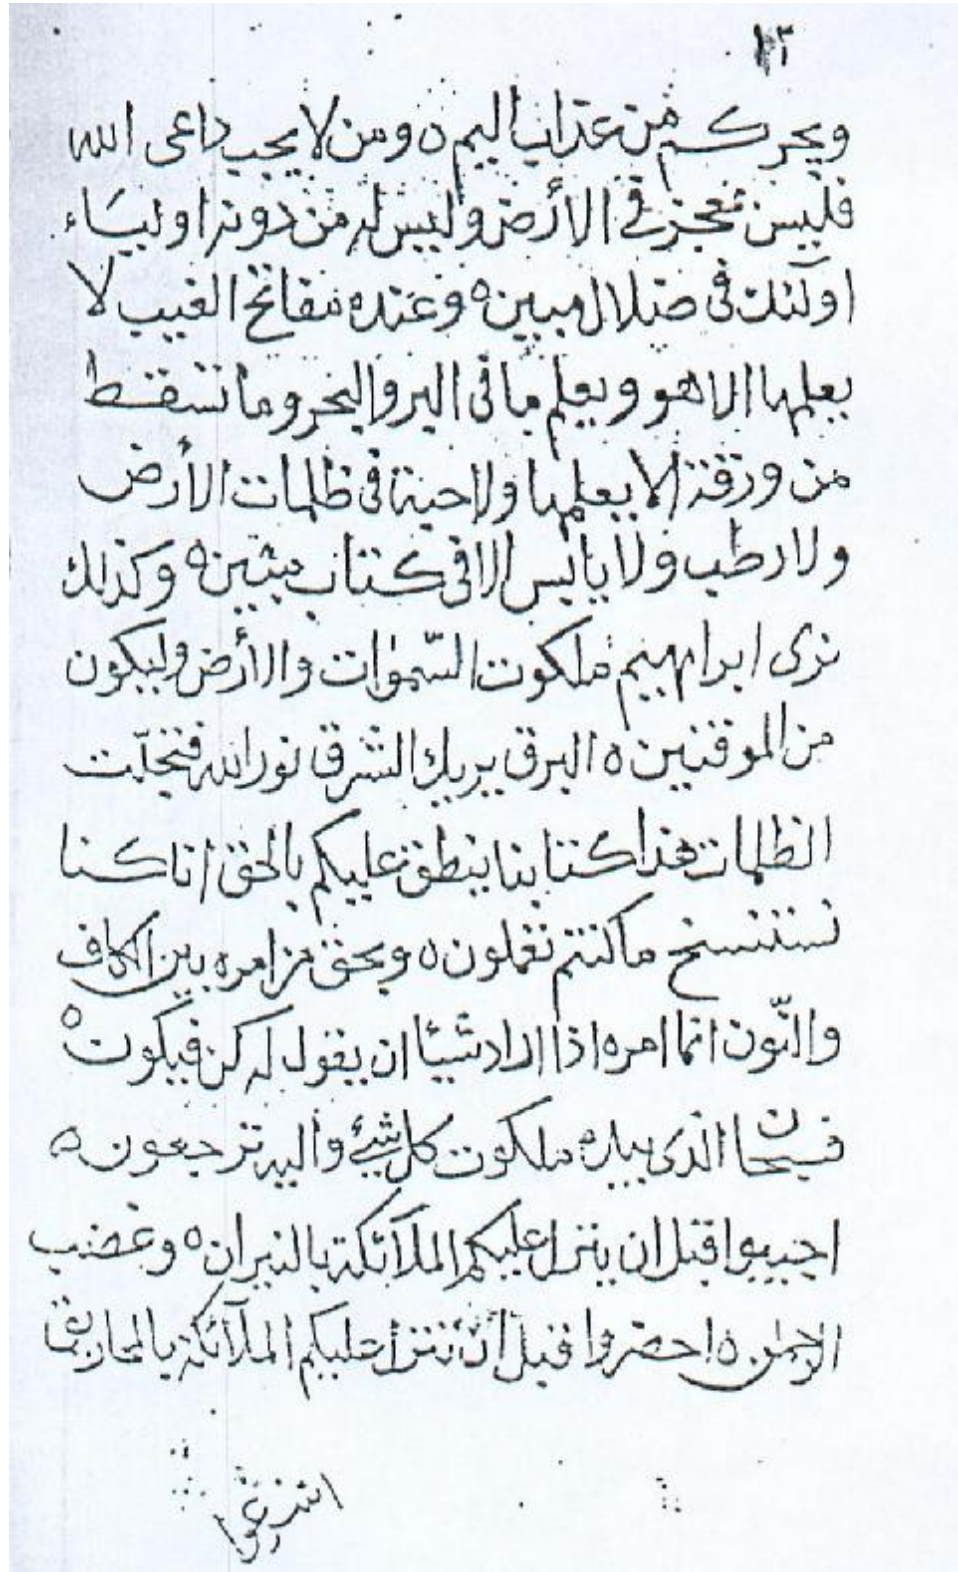 ١٢
ويجركم من عذاب اليم ٥ ومن لا يجب داعى الله
فليس بمعجز في الأرض وليس له من دونه اوليسَاء
اولئك فى ضلال مبين ٥ وعنده مفاتح الغيب لا
يعلمها الا هو ويعلم ما فى البر والبحر وما تسقط
من ورقة الا يعلمها ولا حبة فى ظلمات الأرض
ولا رطب ولا يابس الا فى كتاب مبين ٥ وكذلك
نرى ابراهيم ملكوت السّموات والأرض وليكون
من الموقنين ٥ البرق يريك الشرق نور الله فتجلّت
الظلمات هذا كتابنا ينطق عليكم بالحق انا كنا
نستنسخ ما كنتم تعملون ٥ وبحق من امره بين الكاف
والنّون انما امره اذا اراد شيئا ان يقول له كن فيكون ٥
فسبحان الذى بيده ملكوت كل شيئ واليه ترجعون ٥
اجيبوا قبل ان ينزل عليكم الملآئكة بالنيران ٥ وغضب
الرحمن ٥ احضروا قبل أن تنزل عليكم الملآئكة بالمحاريق
اسرعوا